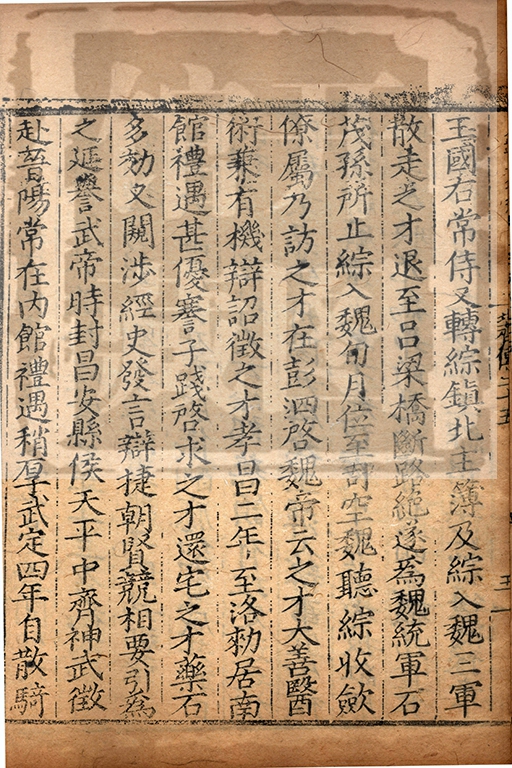 王國右常侍又轉綜鎮北主簿及綜入魏三軍
散走之才退至吕梁橋斷路絕遂為魏統軍石
茂孫所止綜入魏旬月位至司空魏聽綜收斂
僚屬乃訪之才在彭泗啓魏帝云之才大善醫
術兼有機辯詔徵之才孝昌二年至洛勑居南
館禮遇甚優謇子踐啓求之才還宅之才藥石
多効又闚涉經史發言辯捷朝賢競相要引為
之延譽武帝時封昌安縣侯天平中齊神武徵
赴晉陽常在内館禮遇稍厚武定四年自散騎